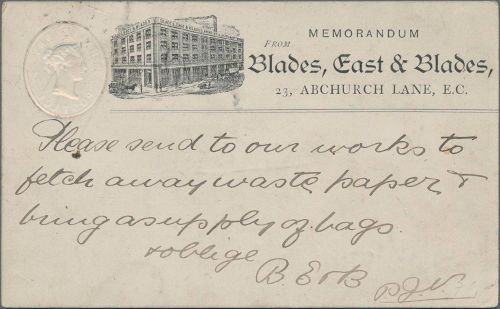 MEMORANDUM
FROM
Blades, East & Blades,
23, ABCHURCH LANE, E.C.
Please send to our works to
fetch away waste paper &
bring a supply of bags.
& oblige
B. E & B